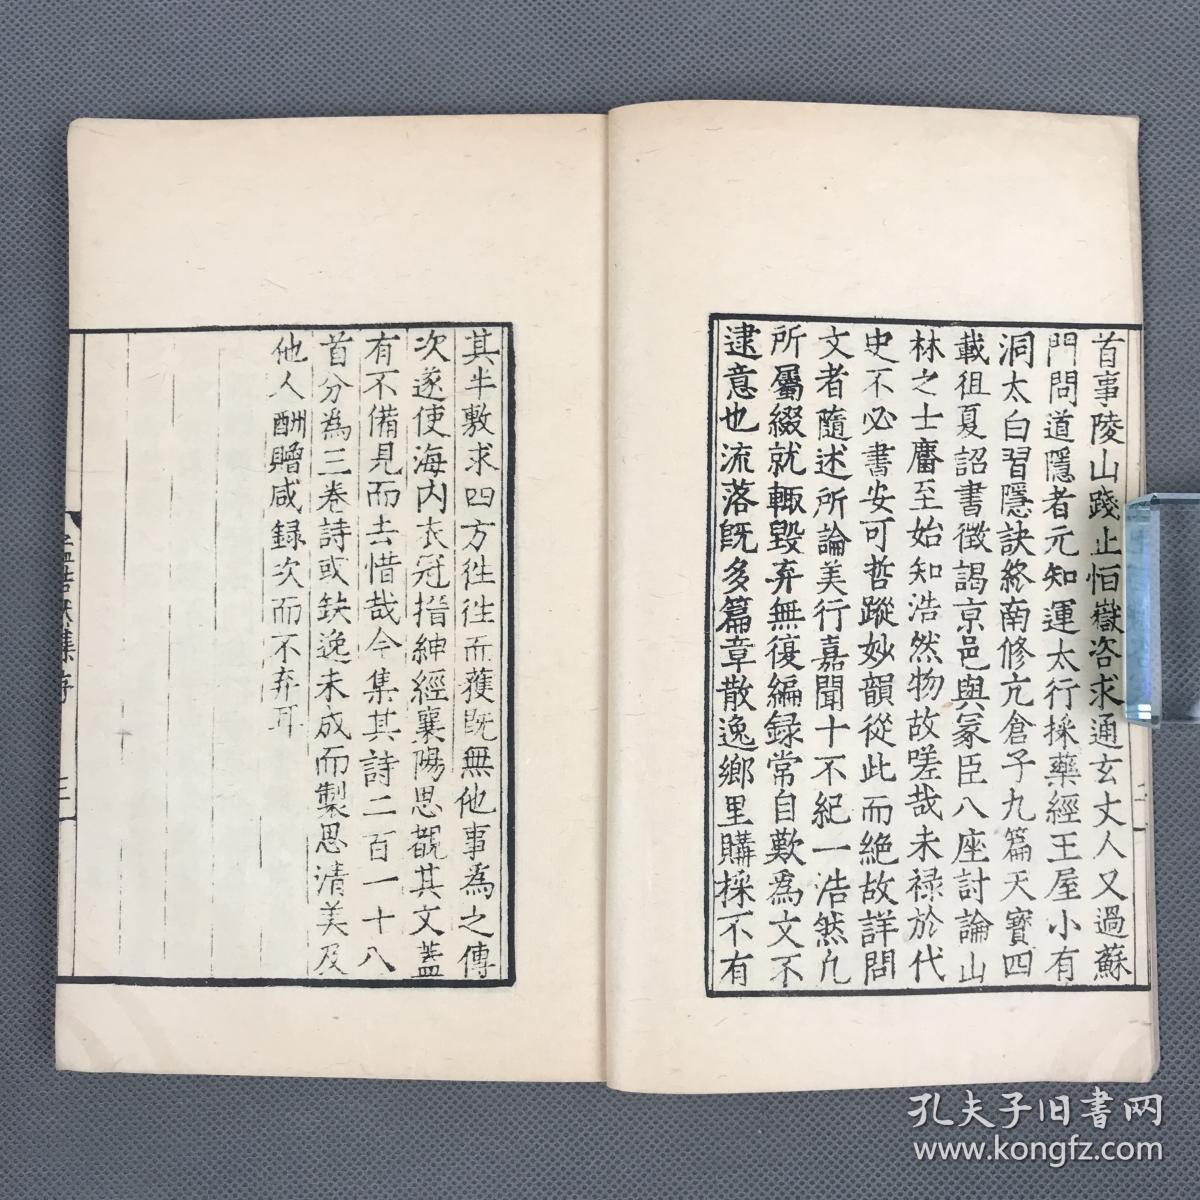 首事陵山踐止恒嶽咨求通玄丈人又過蘇
門問道隱者元知運太行採藥經王屋小有
洞太白習隱訣終南修亢倉子九篇天寶四
載徂夏詔書徵謁京邑與冡臣八座討論山
林之士麏至始知浩然物故嗟哉未禄於代
史不必書安可哲蹤妙韻從此而絶故詳問
文者隨述所論美行嘉聞十不紀一浩然凢
所屬綴就輒毀弃無復編録常自歎為文不
逮意也流落既多篇章散逸鄉里購採不有
其半敷求四方往往而獲既無他事為之傳
次遂使海内衣冠搢紳經襄陽思覩其文蓋
有不備見而去惜哉今集其詩二百一十八
首分為三卷詩或缺逸未成而製思清美及
他人酬贈咸録次而不弃耳
孟浩然集序
三
孔夫子旧书网
www.kongfz.com